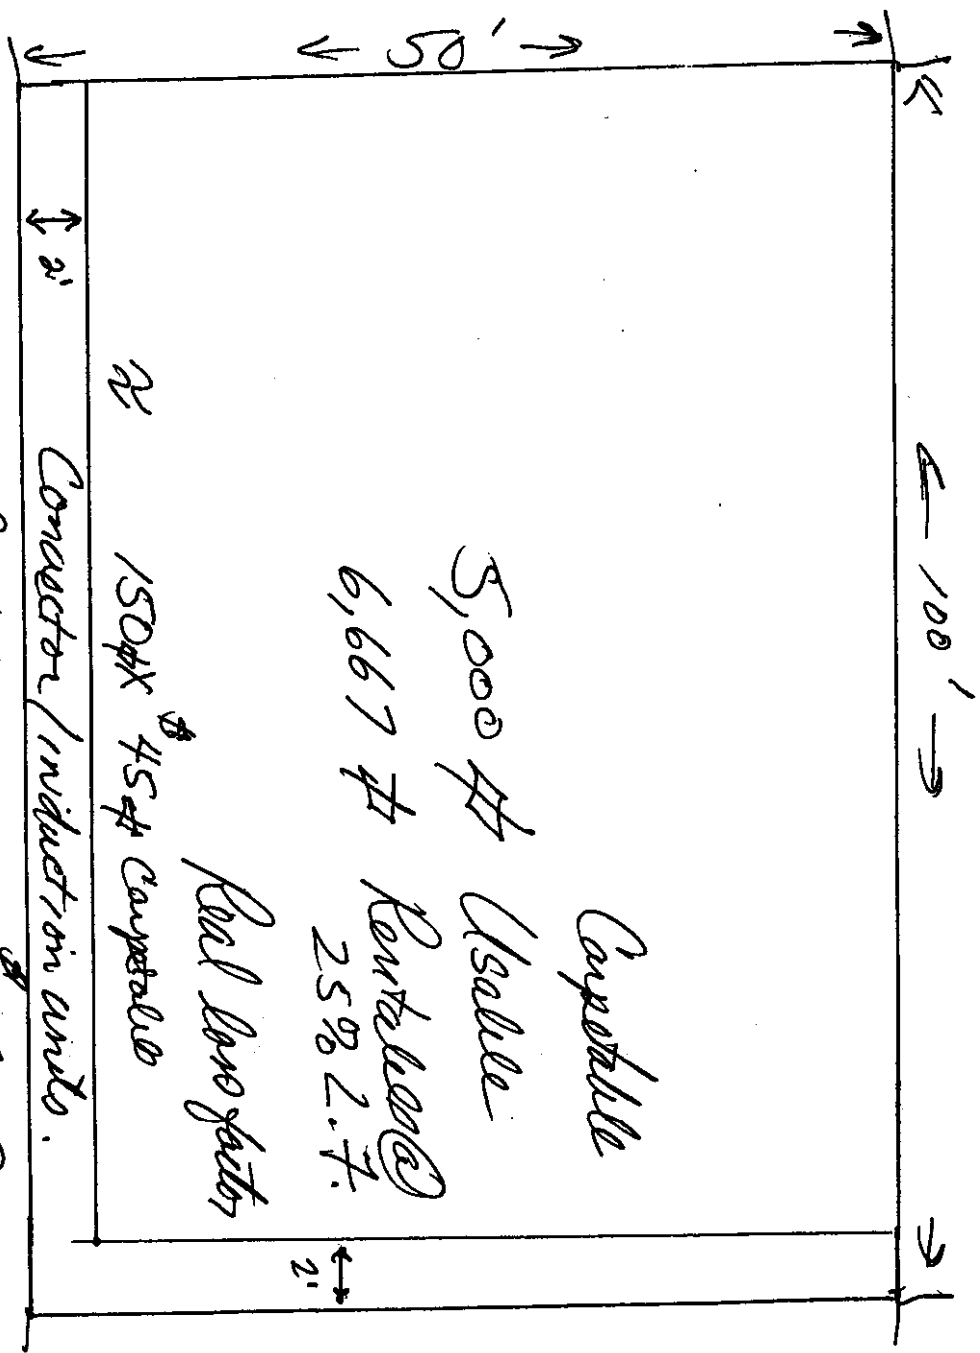 ← 100' →
← 50' →
Carpetable
5,000 # Usable
6,667 # Rentable @
25% L.F.
Real loss factor
2'
≈ 150# X $45# Carpetable
2'
Convector/induction units.